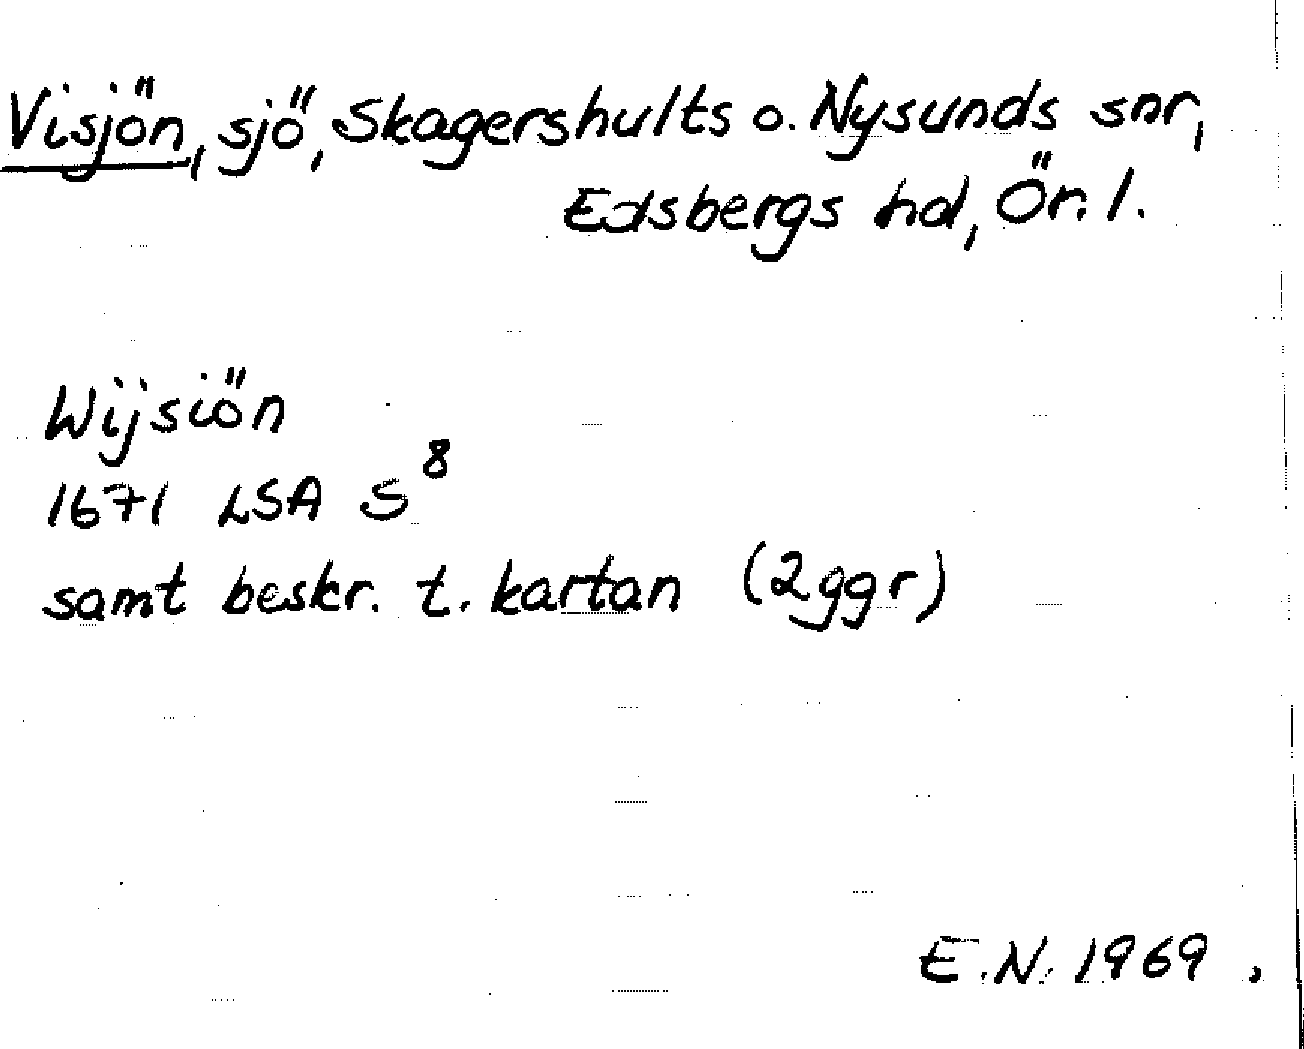 Visjön, sjö, Skagershults o. Nysunds snr,
Edsbergs hd, Ör. l.
Wijsiön
1671 LSA S⁸
samt beskr. t. kartan (2ggr)
E.N. 1969.